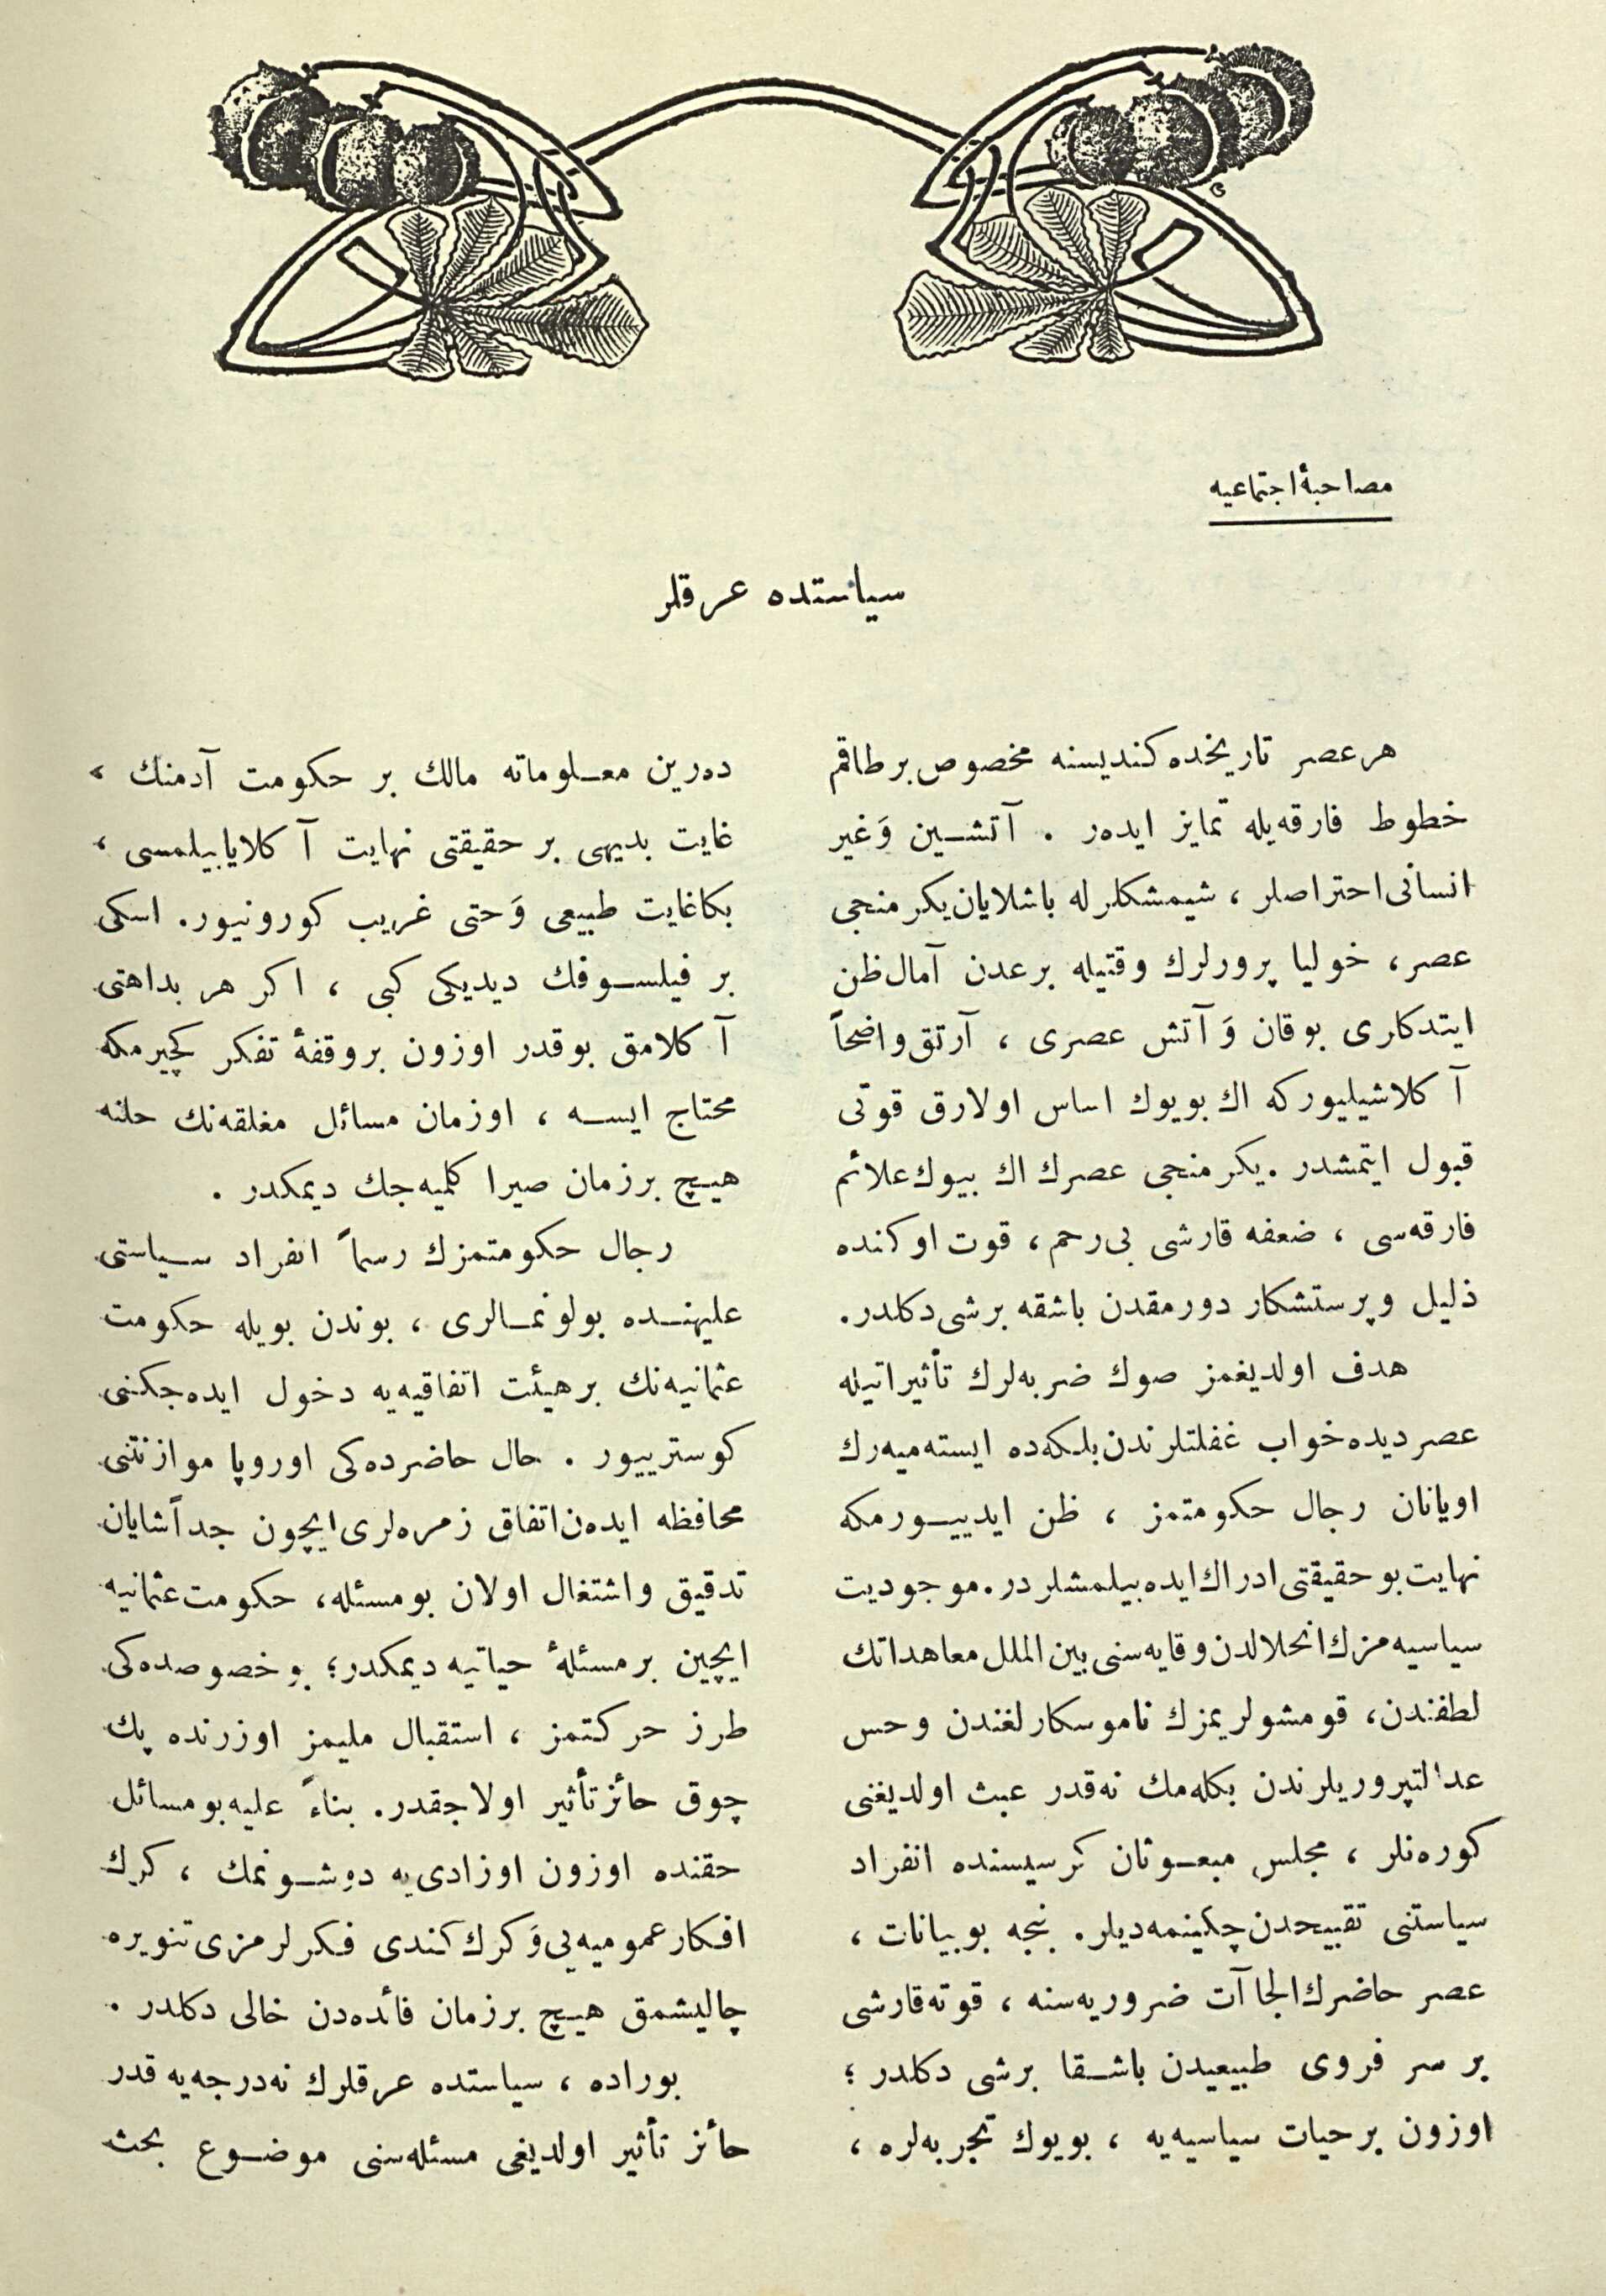 مصاحبهٔ اجتماعیه
سیاستده عرقلر
هر عصر تاریخده کندیسنه مخصوص بر طاقم
خطوط فارقه‌یله تمایز ایده‌ر . آتشین وَ غیر
انسانی احتراصلر ، شیمشکلر له باشلایان یکرمنجی
عصر ، خولیا پرورلرك وقتیله بر عدن آمال ظن
ایتدکاری بوقان وَ آتش عصری ، آرتق واضحاً
آ کلاشیلیورکه اك بویوك اساس اولارق قوتی
قبول ایتمشدر . یکرمنجی عصرك اك بیوك علائم
فارقه‌سی ، ضعفه قارشی بی‌رحم ، قوت اوکنده
ذلیل وپرستشکار دورمقدن باشقه برشی دکلدر .
هدف اولدیغمز صوك ضربه‌لرك تأثیراتیله
عصردیده خواب غفلتلرندن بلکه‌ده ایسته‌میه‌رك
اویانان رجال حکومتمز ، ظن ایدییورمکه
نهایت بو حقیقتی ادراك ایده بیلمشلردر . موجودیت
سیاسیه‌مزك انحلالدن وقایه‌سنی بین الملل معاهداتك
لطفندن ، قومشولریمزك ناموسکارلغندن وحس
عدالتپروریلرندن بکله‌مك نه‌قدر عبث اولدیغنی
کوره‌نلر ، مجلس مبعوثان کرسیسنده انفراد
سیاستنی تقبیحدن چکینمه‌دیلر . بنجه بو بیانات ،
عصر حاضرك الجا آت ضروریه‌سنه ، قوته‌قارشی
بر سر فروی طبیعیدن باشقا برشی دکلدر ؛
اوزون بر حیات سیاسیه‌یه ، بویوك تجربه‌لره ،
ده‌رین معلوماته مالك بر حکومت آدمنك ،
غایت بدیهی بر حقیقتی نهایت آ کلایابیلمسی ،
بکاغایت طبیعی وَحتی غریب کورونیور . اسکی
بر فیلسوفك دیدیکی کبی ، اکر هر بداهتی
آ کلامق بوقدر اوزون بروقفهٔ تفکر کچیرمکه
محتاج ایسه ، اوزمان مسائل مغلقه‌نك حلنه
هیچ برزمان صیرا کلمیه‌جك دیمکدر .
رجال حکومتمزك رسماً انفراد سیاستی
علیهنده بولونمالری ، بوندن بویله حکومت
عثمانیه‌نك برهیئت اتفاقیه‌یه دخول ایده‌جکنی
کوسترییور . حال حاضرده‌کی اوروپا موازنتنی
محافظه ایده‌ن اتفاق زمره‌لری ایچون جداً شایان
تدقیق واشتغال اولان بومسئله ، حکومت عثمانیه
ایچین برمسئلهٔ حیاتیه دیمکدر ؛ بو خصوصده‌کی
طرز حرکتمز ، استقبال ملیمز اوزرنده پك
چوق حائز تأثیر اولاجقدر . بناءً علیه بو مسائل
حقنده اوزون اوزادی‌یه دوشونمك ، كرك
افکارعمومیه‌یی وَ كرك كندی فکرلرمزی تنویره
چالیشمق هیچ برزمان فائده‌دن خالی دکلدر .
بوراده ، سیاستده عرقلرك نه‌درجه‌یه قدر
حائز تأثیر اولدیغی مسئله‌سنی موضوع بحث